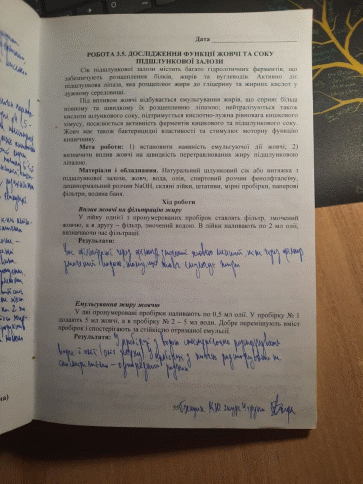 Дата
РОБОТА 3.5. ДОСЛІДЖЕННЯ ФУНКЦІЇ ЖОВЧІ ТА СОКУ
ПІДШЛУНКОВОЇ ЗАЛОЗИ
Сік підшлункової залози містить багато гідролітичних ферментів, що
забезпечують розщеплення білків, жирів та вуглеводів. Активно діє
підшлункова ліпаза, яка розщеплює жири до гліцерину та жирних кислот у
лужному середовищі.
Під впливом жовчі відбувається емульгування жирів, що сприяє більш
повному та швидкому їх розщепленню ліпазою; нейтралізуються також
кислоти шлункового соку, підтримується кислотно-лужна рівновага кишкового
хімусу, посилюється активність ферментів кишкового та підшлункового соку.
Жовч має також бактерицидні властивості та стимулює моторну функцію
кишечнику.
Мета роботи: 1) встановити наявність емульгуючої дії жовчі; 2)
визначити вплив жовчі на швидкість перетравлювання жиру підшлунковою
ліпазою.
Матеріали і обладнання. Натуральний шлунковий сік або витяжка з
підшлункової залози, жовч, вода, олія, спиртовий розчин фенолфталеїну,
децинормальний розчин NaOH, скляні лійки, штативи, мірні пробірки, паперові
фільтри, водяна баня.
Хід роботи
Вплив жовчі на фільтрацію жиру
У лійку однієї з пронумерованих пробірок ставлять фільтр, змочений
жовчю, а в другу – фільтр, змочений водою. В лійки наливають по 2 мл олії,
визначаючи час фільтрації.
Результати:
Час фільтрації через фільтр змочений жовчю менший ніж через фільтр
змочений водою, оскільки жовч емульгує жири
Емульгування жиру жовчю
У дві пронумеровані пробірки наливають по 0,5 мл олії. У пробірку № 1
додають 5 мл жовчі, а в пробірку № 2 – 5 мл води. Добре перемішують вміст
пробірок і спостерігають за стійкістю отриманої емульсії.
Результати: У пробірці з водою спостерігаємо розшарування
води і олії